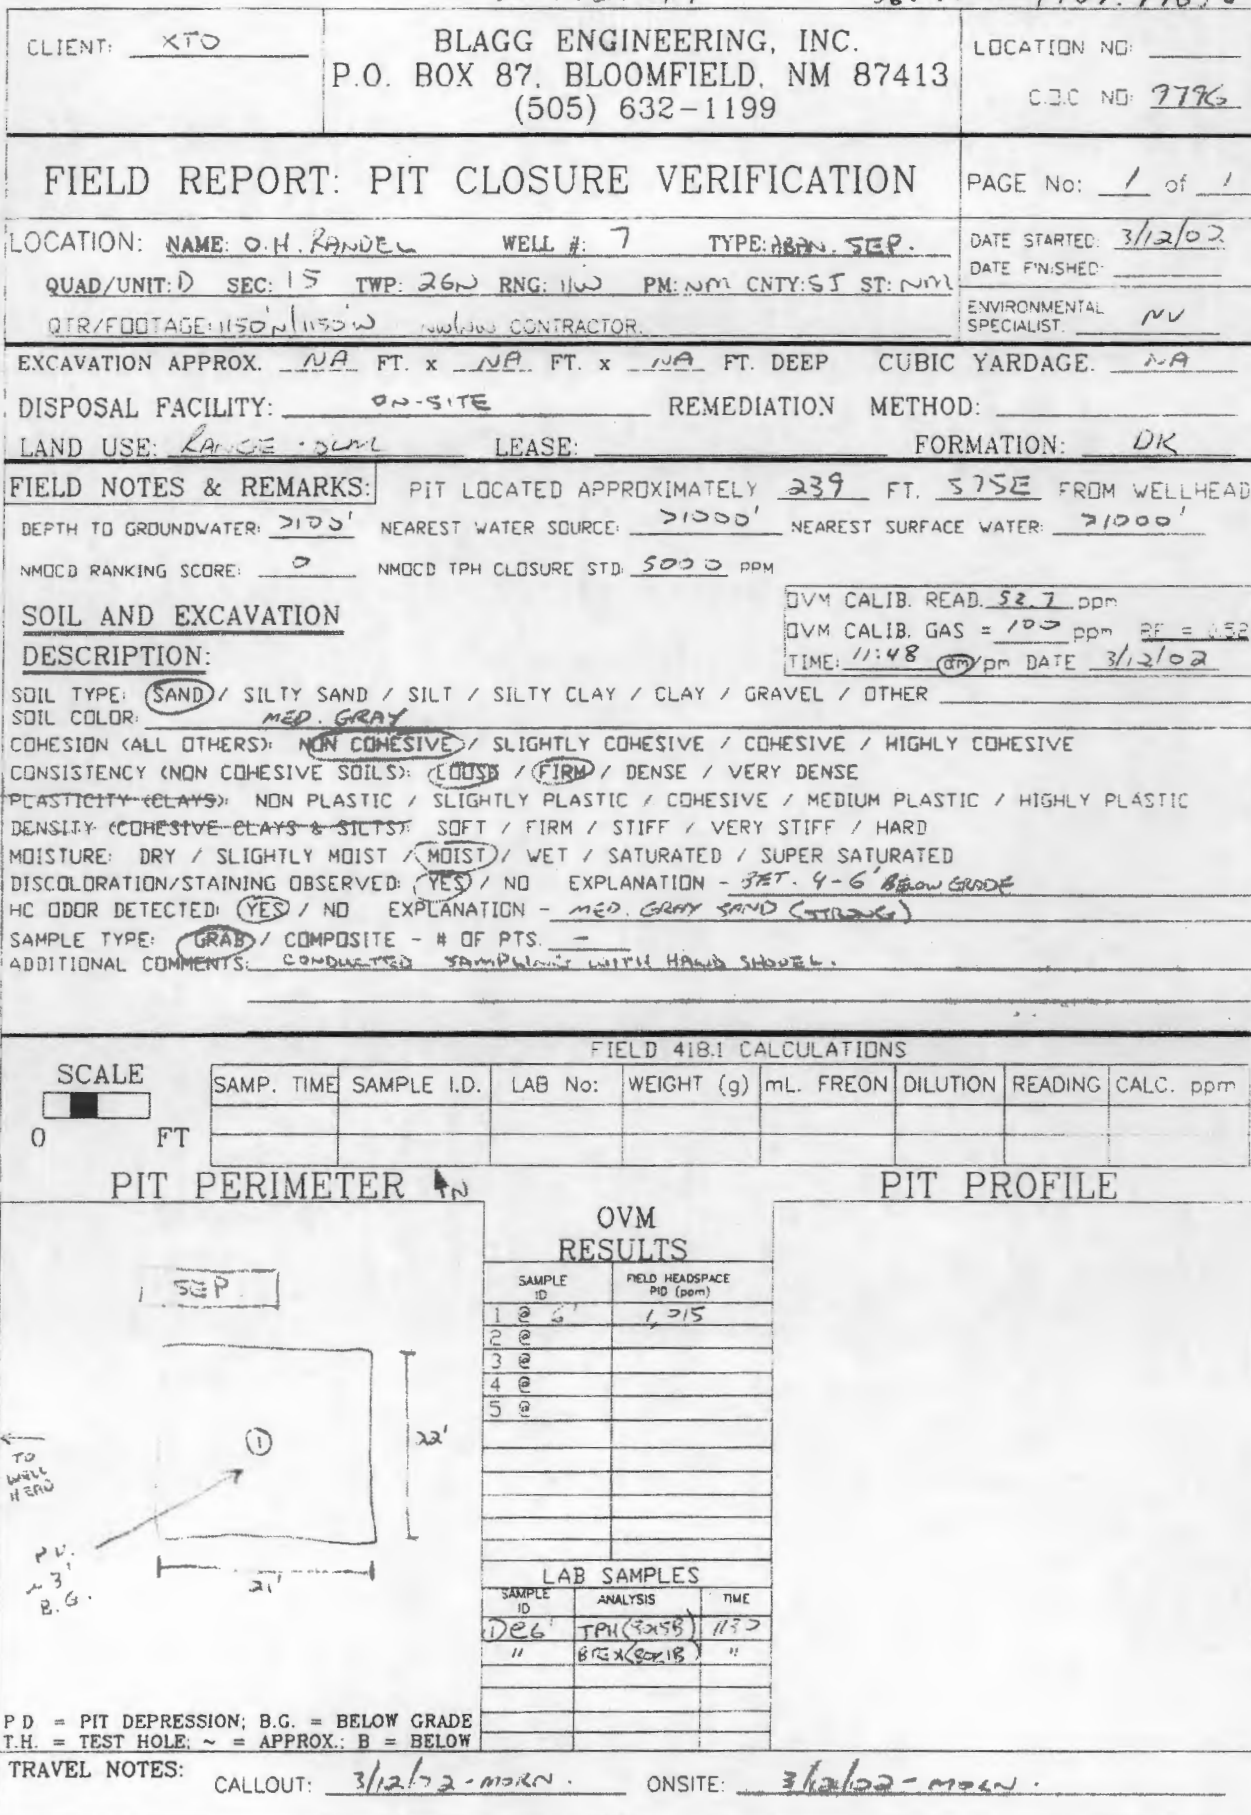 CLIENT: XTO
BLAGG ENGINEERING, INC.
P.O. BOX 87, BLOOMFIELD, NM 87413
(505) 632-1199
LOCATION NO:
C.O.C NO: 9796
FIELD REPORT: PIT CLOSURE VERIFICATION
PAGE No: 1 of 1
LOCATION: NAME: O.H. RANDEL WELL #: 7 TYPE: ABAN. SEP.
QUAD/UNIT: D SEC: 15 TWP: 26N RNG: 11W PM: NM CNTY: SJ ST: NM
QTR/FOOTAGE: 1150'N/1150'W NW/NW CONTRACTOR:
DATE STARTED: 3/12/02
DATE FINISHED:
ENVIRONMENTAL
SPECIALIST: NV
EXCAVATION APPROX. NA FT. x NA FT. x NA FT. DEEP CUBIC YARDAGE. NA
DISPOSAL FACILITY: ON-SITE REMEDIATION METHOD:
LAND USE: RANGE - LEASE: FORMATION: DK
FIELD NOTES & REMARKS: PIT LOCATED APPROXIMATELY 239 FT. S75E FROM WELLHEAD
DEPTH TO GROUNDWATER: >100' NEAREST WATER SOURCE: >1000' NEAREST SURFACE WATER: >1000'
NMOCD RANKING SCORE: 0 NMOCD TPH CLOSURE STD: 5000 PPM
SOIL AND EXCAVATION
DESCRIPTION:
OVM CALIB. READ. 52.7 ppm
OVM CALIB. GAS = 100 ppm RF = 0.52
TIME: 11:48 am/pm DATE 3/12/02
SOIL TYPE: SAND / SILTY SAND / SILT / SILTY CLAY / CLAY / GRAVEL / OTHER
SOIL COLOR: MED. GRAY
COHESION (ALL OTHERS): NON COHESIVE / SLIGHTLY COHESIVE / COHESIVE / HIGHLY COHESIVE
CONSISTENCY (NON COHESIVE SOILS): LOOSE / FIRM / DENSE / VERY DENSE
PLASTICITY (CLAYS): NON PLASTIC / SLIGHTLY PLASTIC / COHESIVE / MEDIUM PLASTIC / HIGHLY PLASTIC
DENSITY (COHESIVE CLAYS & SILTS): SOFT / FIRM / STIFF / VERY STIFF / HARD
MOISTURE: DRY / SLIGHTLY MOIST / MOIST / WET / SATURATED / SUPER SATURATED
DISCOLORATION/STAINING OBSERVED: YES / NO EXPLANATION - BET. 4-6' BELOW GRADE
HC ODOR DETECTED: YES / NO EXPLANATION - MED. GRAY SAND (STRONG)
SAMPLE TYPE: GRAB / COMPOSITE - # OF PTS. -
ADDITIONAL COMMENTS: CONDUCTED SAMPLING WITH HAND SHOVEL.
FIELD 418.1 CALCULATIONS
SCALE
0 FT
SAMP. TIME SAMPLE I.D. LAB No: WEIGHT (g) mL. FREON DILUTION READING CALC. ppm
PIT PERIMETER N
PIT PROFILE
OVM
RESULTS
SAMPLE ID FIELD HEADSPACE PID (ppm)
1 @ 6' 1,015
2 @
3 @
4 @
5 @
SEP.
1
22'
21'
TO
WELL
HEAD
P.D.
~3'
B.G.
LAB SAMPLES
SAMPLE ID ANALYSIS TIME
1@6' TPH (8015B) 1130
" BTEX (8021B) "
P D = PIT DEPRESSION; B.G. = BELOW GRADE
T.H. = TEST HOLE; ~ = APPROX.; B = BELOW
TRAVEL NOTES: CALLOUT: 3/12/02 - MORN. ONSITE: 3/12/02 - MORN.